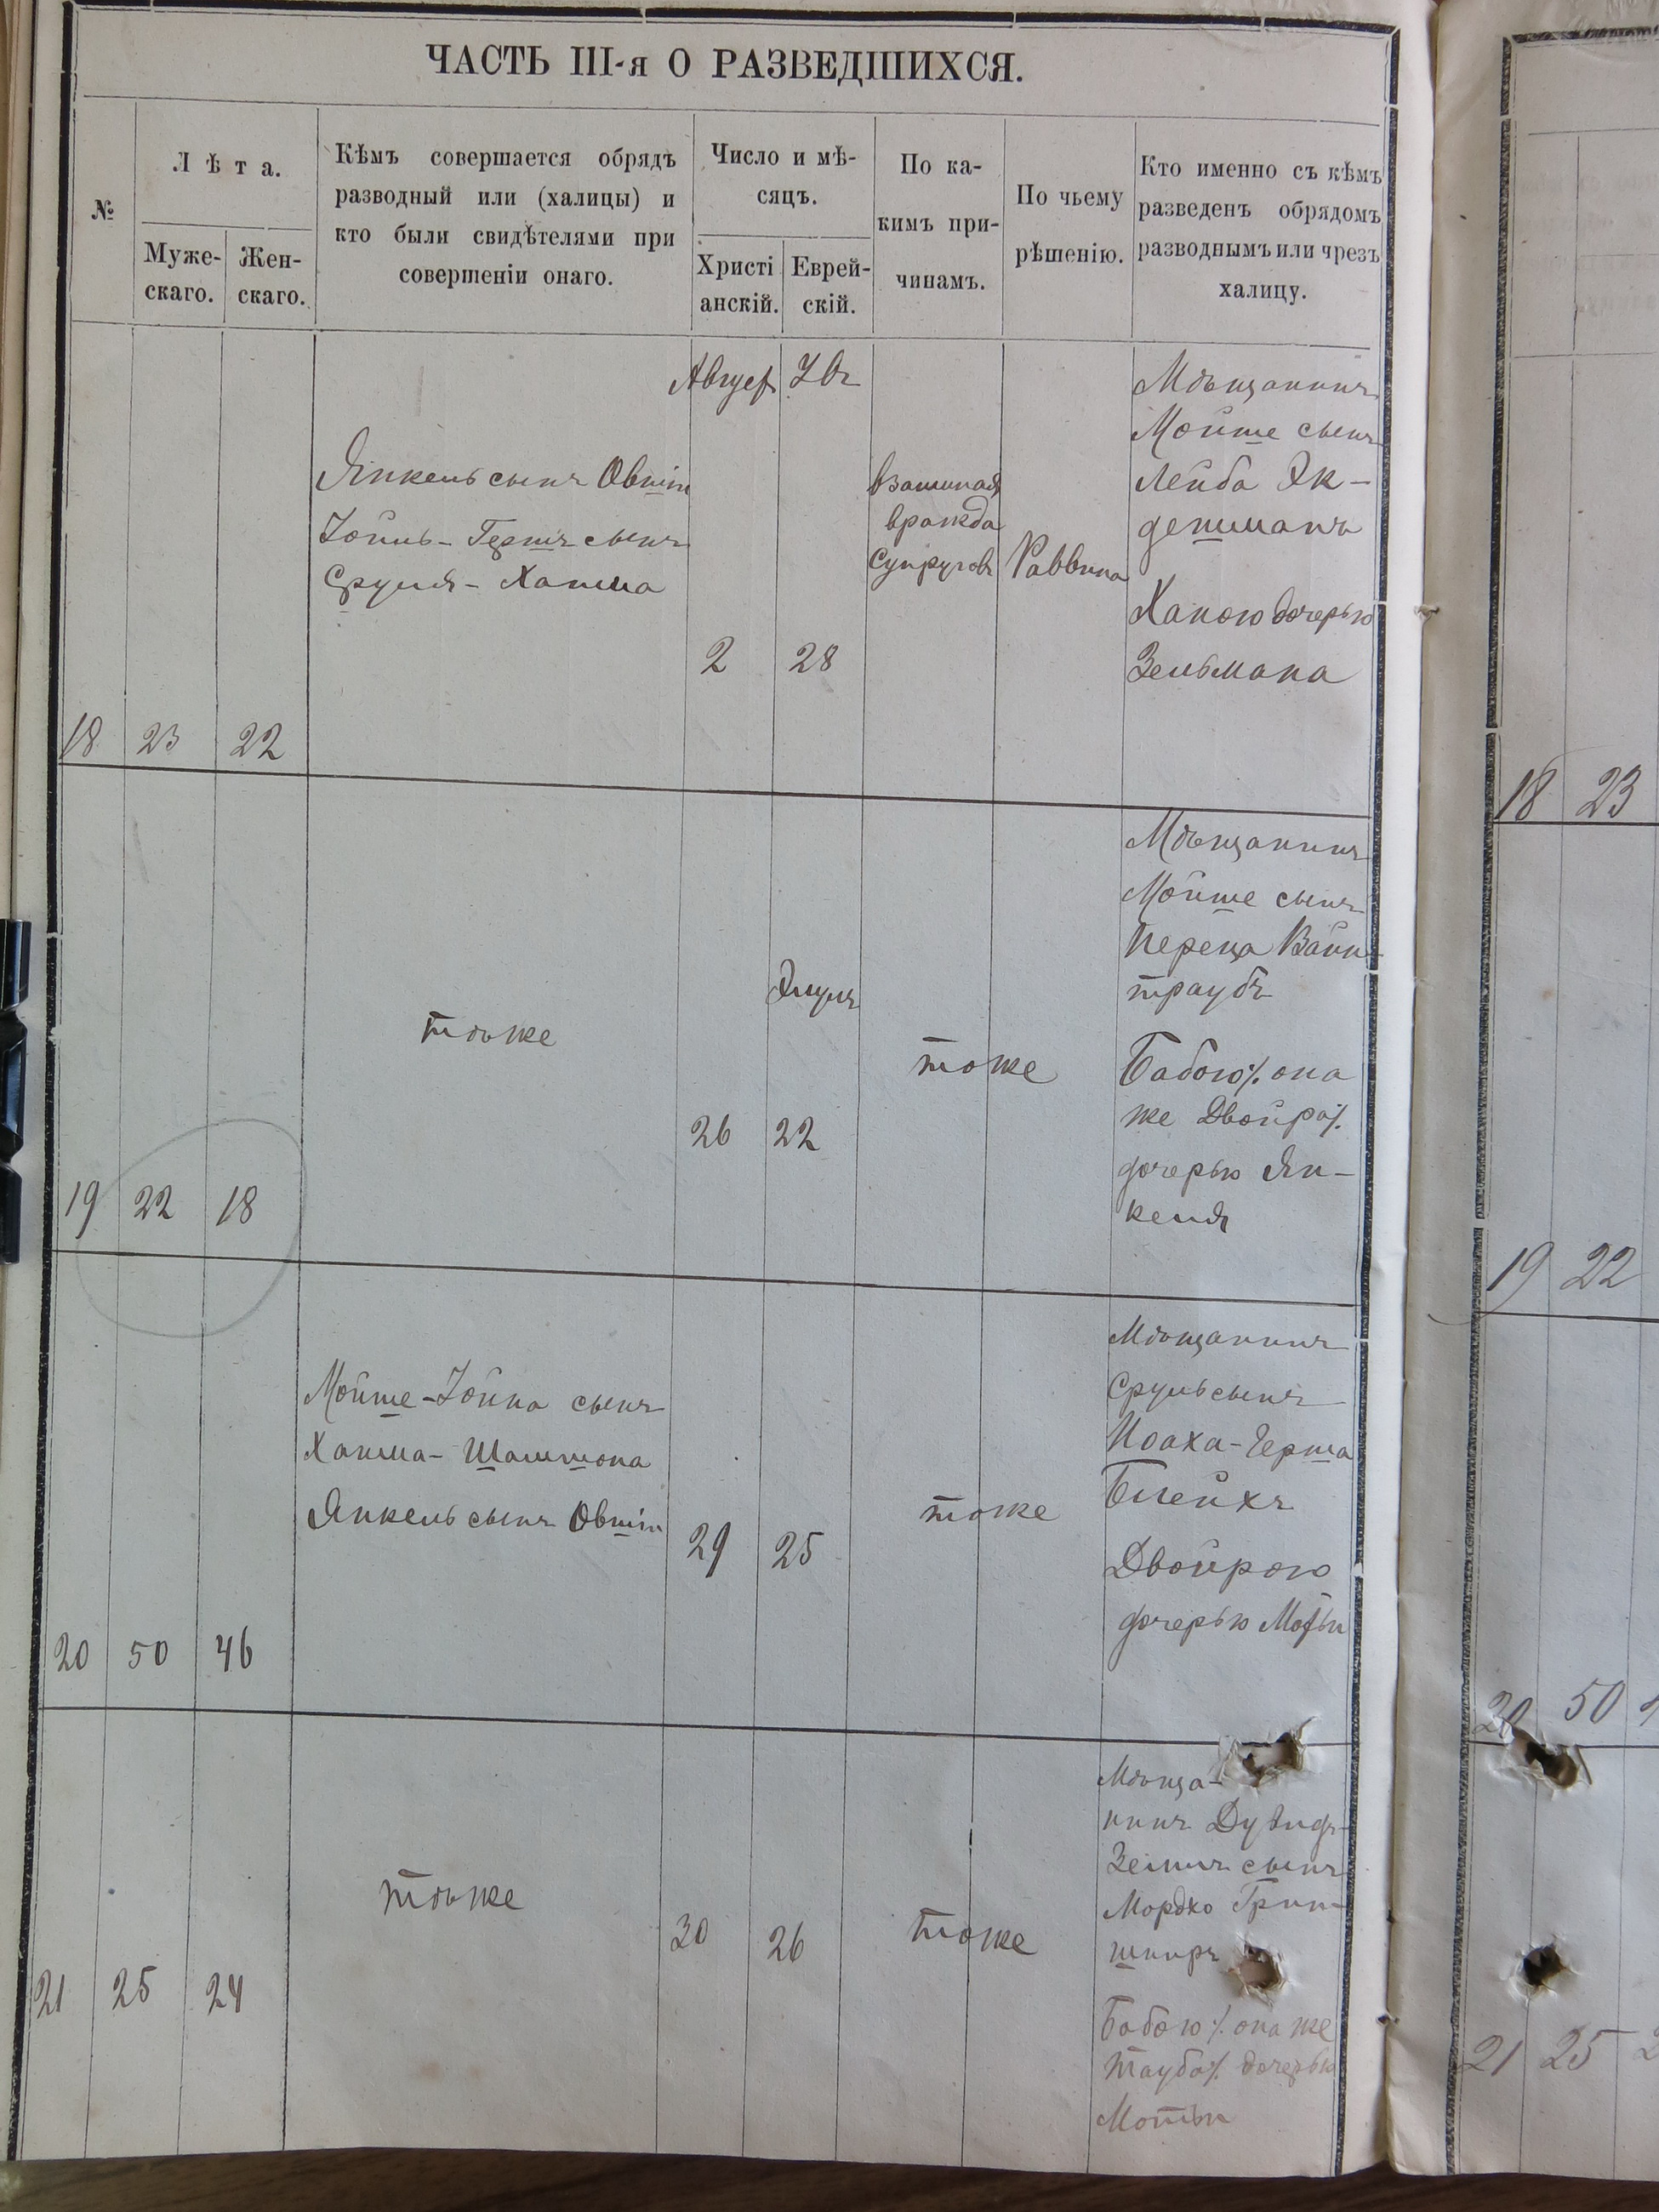 ЧАСТЬ III-я О РАЗВЕДШИХСЯ.
№
Лѣта.
Муже-
скаго.
Жен-
скаго.
Кѣмъ совершается обрядъ
разводный или (халицы) и
кто были свидѣтелями при
совершеніи онаго.
Число и мѣ-
сяцъ.
Христі
анскій.
Еврей-
скій.
По ка-
кимъ при-
чинамъ.
По чьему
рѣшенію.
Кто именно съ кѣмъ
разведенъ обрядомъ
разводнымъ или чрезъ
халицу.
18 23 22
Янкель сынъ Овшіи
Іойнь-Гершъ сынъ
Сруля-Хаима
Август
2
28
взаимная
вражда
супруговъ
Раввина
Мѣщанинъ
Мойше сынъ
Лейба Эк-
дешманъ
Ханою дочерью
Зельмана
19 22 18
тѣже
26
Элулъ
22
тоже
Мѣщанинъ
Мойше сынъ
Переца Вайн-
траубъ
Бабою ./. она
же Двойра ./.
дочерью Ян-
келя
20 50 46
Мойше-Іойна сынъ
Хаима-Шамшона
Янкель сынъ Овшіи
29
25
тоже
Мѣщанинъ
Сруль сынъ
Ноаха-Герша
Блейхъ
Двойрою
дочерью Мотьи
21 25 24
тѣже
30
26
тоже
Мѣща-
нинъ Дувидъ-
Зелигъ сынъ
Мордко Грин-
шпиръ
Бабою ./. она же
Тауба ./. дочерью
Мотьи
18 23
19 22
20 50
21 25